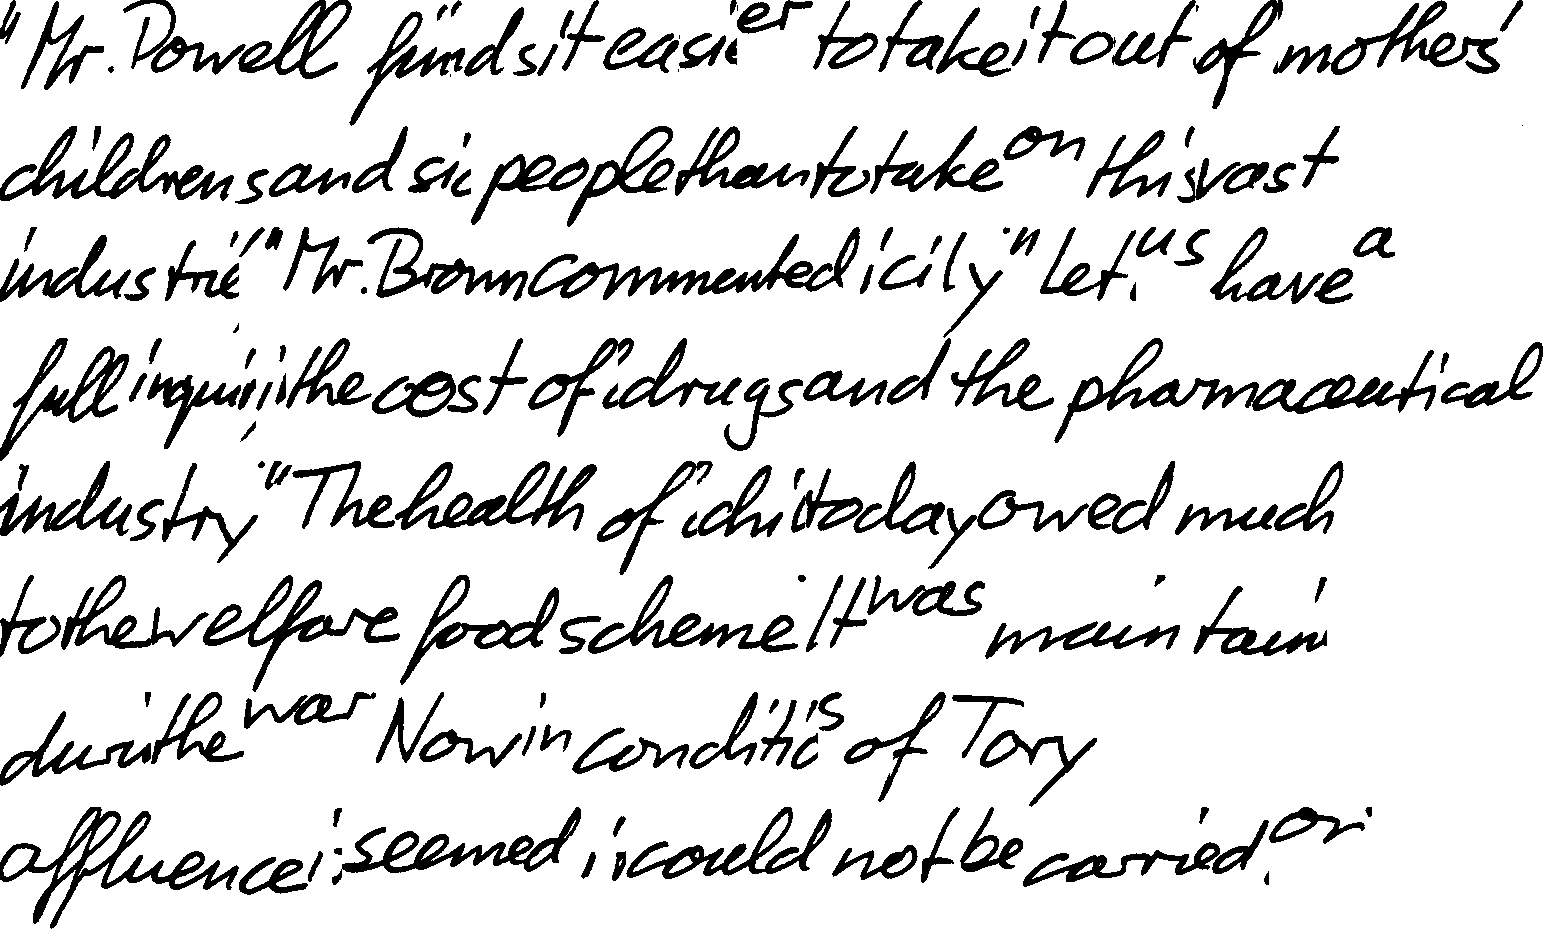 "Mr. Powell finds it easier to take it out of mothers'
childrens and sic people than to take on this vast
industrie" Mr. Brown commented icily " Let us have a
full inquiri the cost of drugs and the pharmaceutical
industry " The health of today owed much
to the welfare food scheme It was maintain
duri the war Now in conditis of Tory
affluence i seemed i could not be carried on